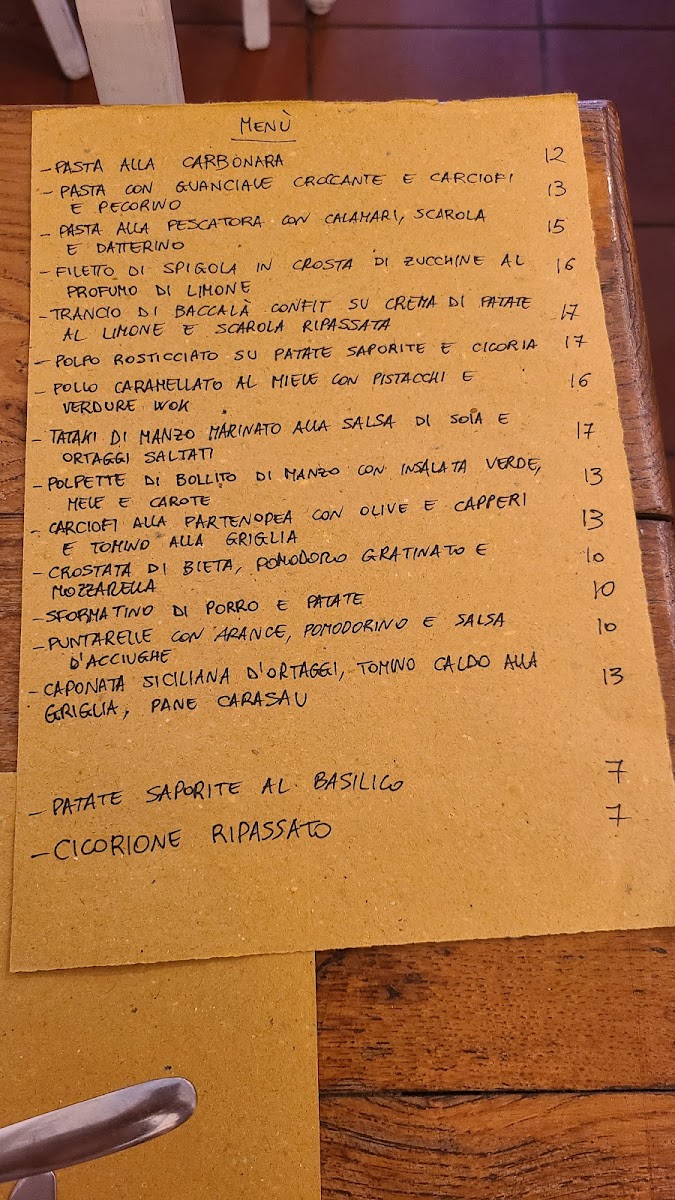 MENÙ
- PASTA ALLA CARBONARA 12
- PASTA CON GUANCIALE CROCCANTE E CARCIOFI 13
E PECORINO
- PASTA ALLA PESCATORA CON CALAMARI, SCAROLA 15
E DATTERINO
- FILETTO DI SPIGOLA IN CROSTA DI ZUCCHINE AL 16
PROFUMO DI LIMONE
- TRANCIO DI BACCALÀ CONFIT SU CREMA DI PATATE 17
AL LIMONE E SCAROLA RIPASSATA
- POLPO ROSTICCIATO SU PATATE SAPORITE E CICORIA 17
- POLLO CARAMELLATO AL MIELE CON PISTACCHI E 16
VERDURE WOK
- TATAKI DI MANZO MARINATO ALLA SALSA DI SOIA E 17
ORTAGGI SALTATI
- POLPETTE DI BOLLITO DI MANZO CON INSALATA VERDE, 13
MELE E CAROTE
- CARCIOFI ALLA PARTENOPEA CON OLIVE E CAPPERI 13
E TOMINO ALLA GRIGLIA
- CROSTATA DI BIETA, POMODORO GRATINATO E 10
MOZZARELLA
- SFORMATINO DI PORRO E PATATE 10
- PUNTARELLE CON ARANCE, POMODORINO E SALSA 10
D'ACCIUGHE
- CAPONATA SICILIANA D'ORTAGGI, TOMINO CALDO ALLA 13
GRIGLIA, PANE CARASAU
- PATATE SAPORITE AL BASILICO 7
- CICORIONE RIPASSATO 7